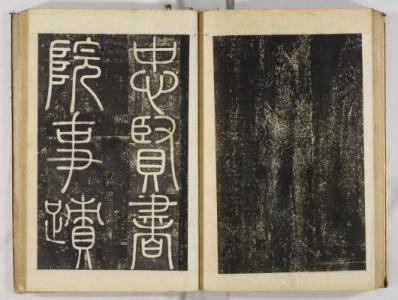 忠賢書
院事蹟